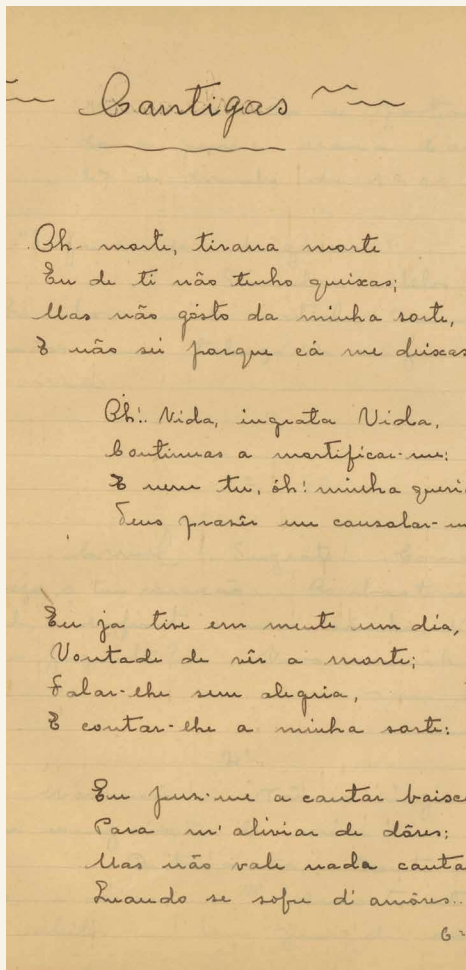 Cantigas
Oh- morte, tirana morte
Eu de ti não tenho queixas;
Mas não gósto da minha sorte,
E não sei porque cá me deixas
Oh!. Vida, ingrata Vida,
Continuas a mortificar-me:
E nem tu, óh! minha queri
Teus prazêr em causalar-m
Eu ja tive em mente um dia,
Vontade de vêr a morte;
Falar-lhe sem alegria,
E contar-lhe a minha sorte:
Eu puz-me a cantar baixo
Para m' aliviar de dôres;
Mas não vale nada canta
Quando se sofre d' amôres..
6=